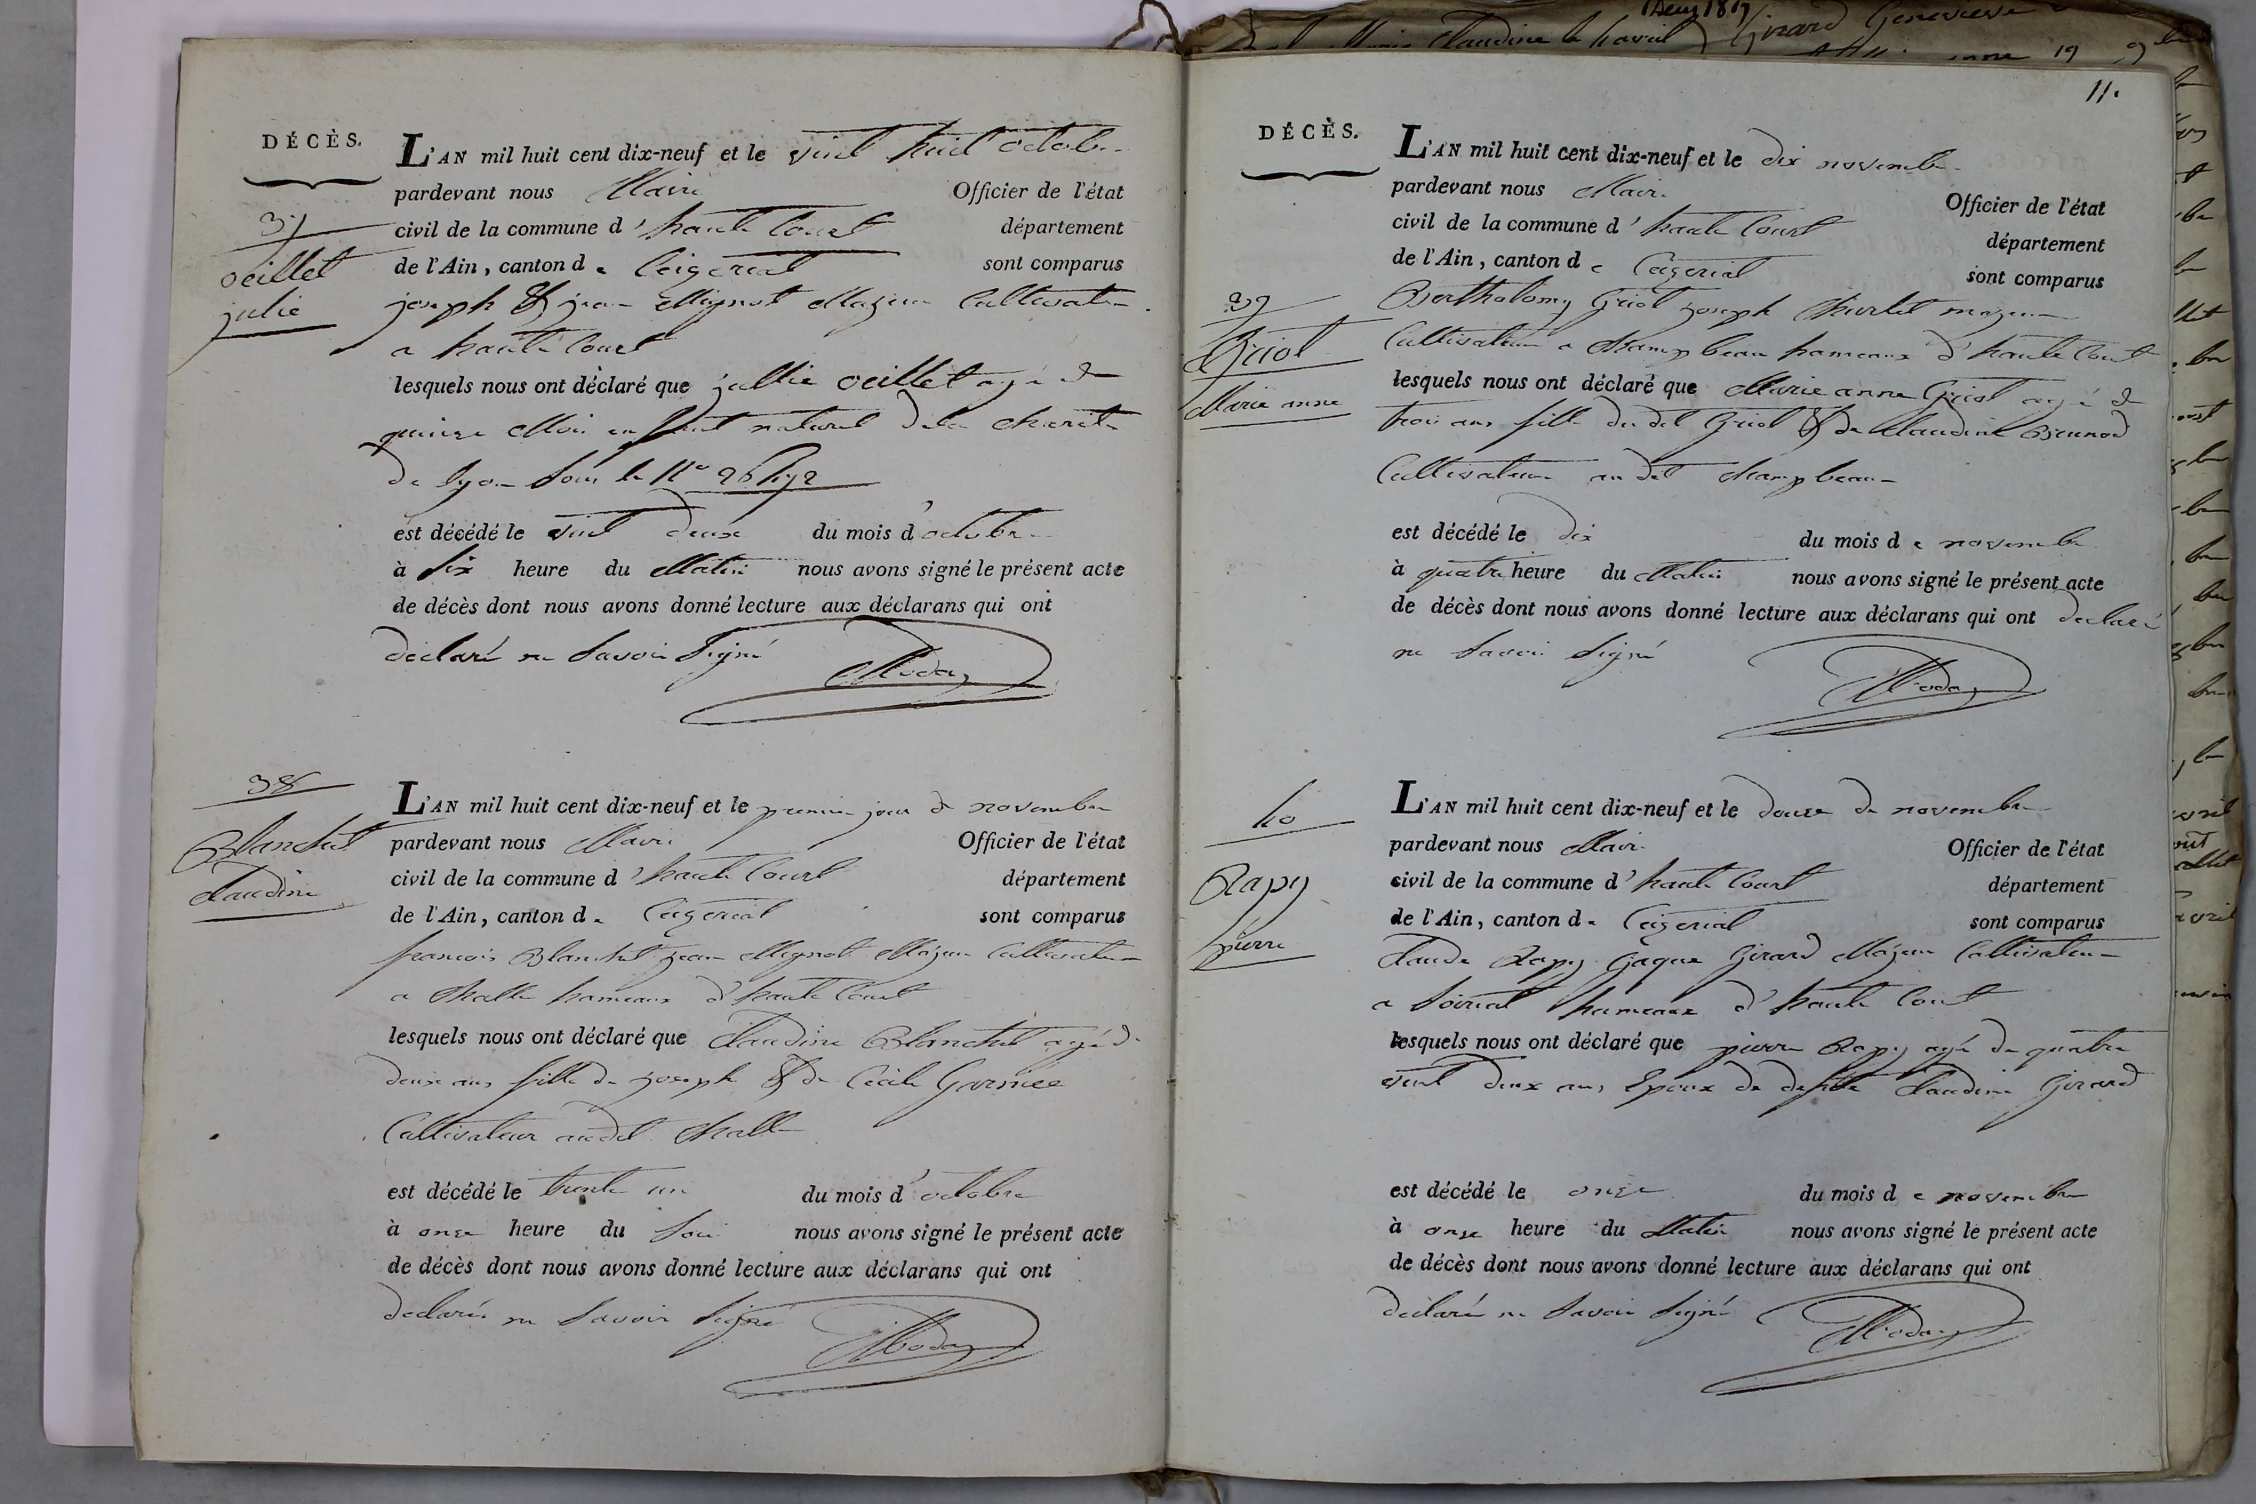 DÉCÈS.
37
oeillet
julie
L'AN mil huit cent dix-neuf et le vint huit octobre
pardevant nous Maire Officier de l'état
civil de la commune d'haute Court département
de l'Ain, canton de Ceizeriat sont comparus
joseph & jean Mignot Majeur Cultivateur
a haute Court
lesquels nous ont déclaré que jullie oeillet agé de
quinze Mois enfant naturel de la charité
de lyon sous le N°
est décédé le vint deux du mois d'octobre
à six heure du Matin nous avons signé le présent acte
de décès dont nous avons donné lecture aux déclarans qui ont
déclaré ne savoir signé
38
Blanchet
Claudine
L'AN mil huit cent dix-neuf et le premier jour de novembre
pardevant nous Maire Officier de l'état
civil de la commune d'haute Court département
de l'Ain, canton de Ceizeriat sont comparus
francois Blanchet jean Mignot Majeur Cultivateur
a Challe hameaux d'haute Court
lesquels nous ont déclaré que Claudine Blanchet agé de
deux ans fille de joseph & de Cécile
Cultivateur audit Challe
est décédé le trente un du mois d'octobre
à onze heure du soir nous avons signé le présent acte
de décès dont nous avons donné lecture aux déclarans qui ont
declaré ne savoir signé
11.
DÉCÈS.
39
Griot
Marie anne
L'AN mil huit cent dix-neuf et le dix novembre
pardevant nous Maire Officier de l'état
civil de la commune d'haute Court département
de l'Ain, canton de Ceizeriat sont comparus
Bartholomy Griot joseph majeur
Cultivateur a Champ beau hameaux d'haute Court
lesquels nous ont déclaré que Marie anne Griot agé de
trois ans fille du dit Griot & de Claudine
Cultivateur au dit Champ beau
est décédé le dix du mois de novembre
à quatre heure du Matin nous avons signé le présent acte
de décès dont nous avons donné lecture aux déclarans qui ont declaré
ne savoir signé
40
Rapy
pierre
L'AN mil huit cent dix-neuf et le douze de novembre
pardevant nous Maire Officier de l'état
civil de la commune d'haute Court département
de l'Ain, canton de Ceizeriat sont comparus
Claude Rapy Jaque Girard Majeur Cultivateur
a hameaux d'haute Court
lesquels nous ont déclaré que pierre Rapy agé de quatre
vint deux ans Epoux de Claudine Girard
est décédé le onze du mois de novembre
à onze heure du Matin nous avons signé le présent acte
de décès dont nous avons donné lecture aux déclarans qui ont
déclaré ne savoir signé